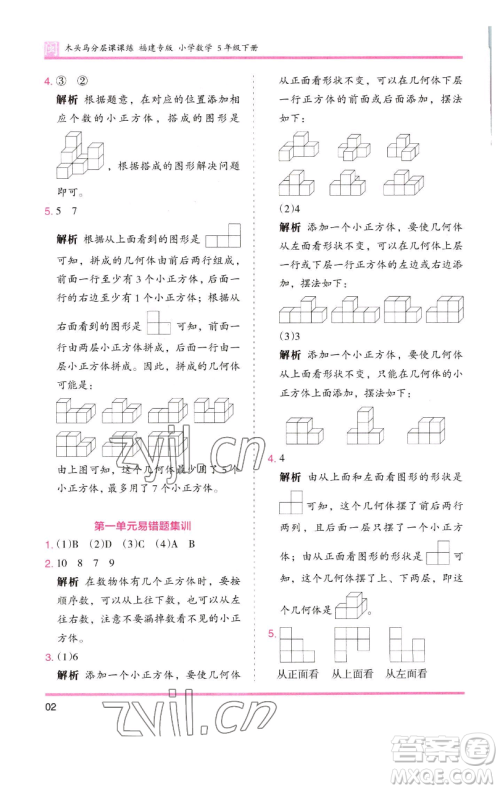 木头马分层课课练 福建专版 小学数学 5年级下册
4. ③ ②
解析 根据题意，在对应的位置添加相
应个数的小正方体，搭成的图形是
，根据搭成的图形解决问题
即可。
5. 5 7
解析 根据从上面看到的图形是
可知，拼成的几何体由前后两行组成，
前面一行至少有3个小正方体，后面一
行的右边至少有1个小正方体。根据从
右面看到的图形是 可知，该几何体
由两层小正方体拼成。因此，拼成的几
何体由两层小正方体拼成。拼成的几何体
可能是：
由上图可知，这个几何体最少用了5个
小正方体，最多用了7个小正方体。
第一单元易错题集训
1. (1)B (2)D (3)C (4)A B
2. 10 8 7 9
解析 在数物体有几个正方体时，要按
顺序数，可以从上往下数，也可以从左
往右数。
3. (1)6
解析 添加一个小正方体，要使几何体
从正面看形状不变，可以在几何体上层添
加一个小正方体，或在几何体下层前后各
添加一行正方体的前面或后面添加，摆法
如下：
(2)4
解析 添加一个小正方体，要使几何体
从左面看形状不变，可以在几何体下层
一行正方体的左边或右边添加，或在几
何体上层添加，摆法如下：
(3)3
解析 添加一个小正方体，要使几何体
从上面看形状不变，可以在几何体上层
添加，摆法如下：
4. 4
解析 由从上面看到的图形的形状是
可知，这个几何体是前后两行
两列，且后面一行有2个小正方体，前
面一行靠左有1个小正方体；由从正面
看到的图形的形状是 可知，这个
几何体是
5.
从正面看 从上面看 从左面看
02
zyjl.cn
zyjl.cn
答案圈
MXQE.COM